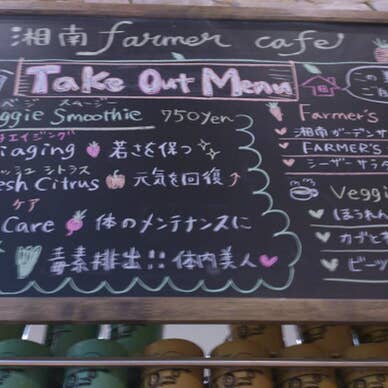 湘南 farmer cafe
Take Out Menu
ベジ スムージー
ggie Smoothie 750yen
エイジング
iaging 若さを保つ
ッシュ シトラス
esh Citrus 元気を回復↑
ケア
Care 体のメンテナンスに
毒素排出!! 体内美人♥
この
Farmer's
♥ 湘南ガーデンサ
♥ FARMER'S
♥ シーザーサラ
Veggi
♥ ほうれん
♥ カブとキ
♥ ビーツ